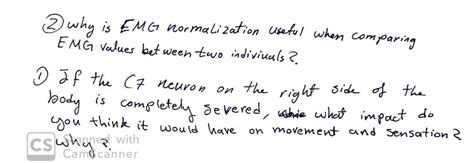 ② why is EMG normalization useful when comparing
EMG values between two indiviuals?.
① If the C7 neuron on the right side of the
body is completely severed, what impact do
you think it would have on movement and sensation?
why?
CS Scanned with
CamScanner